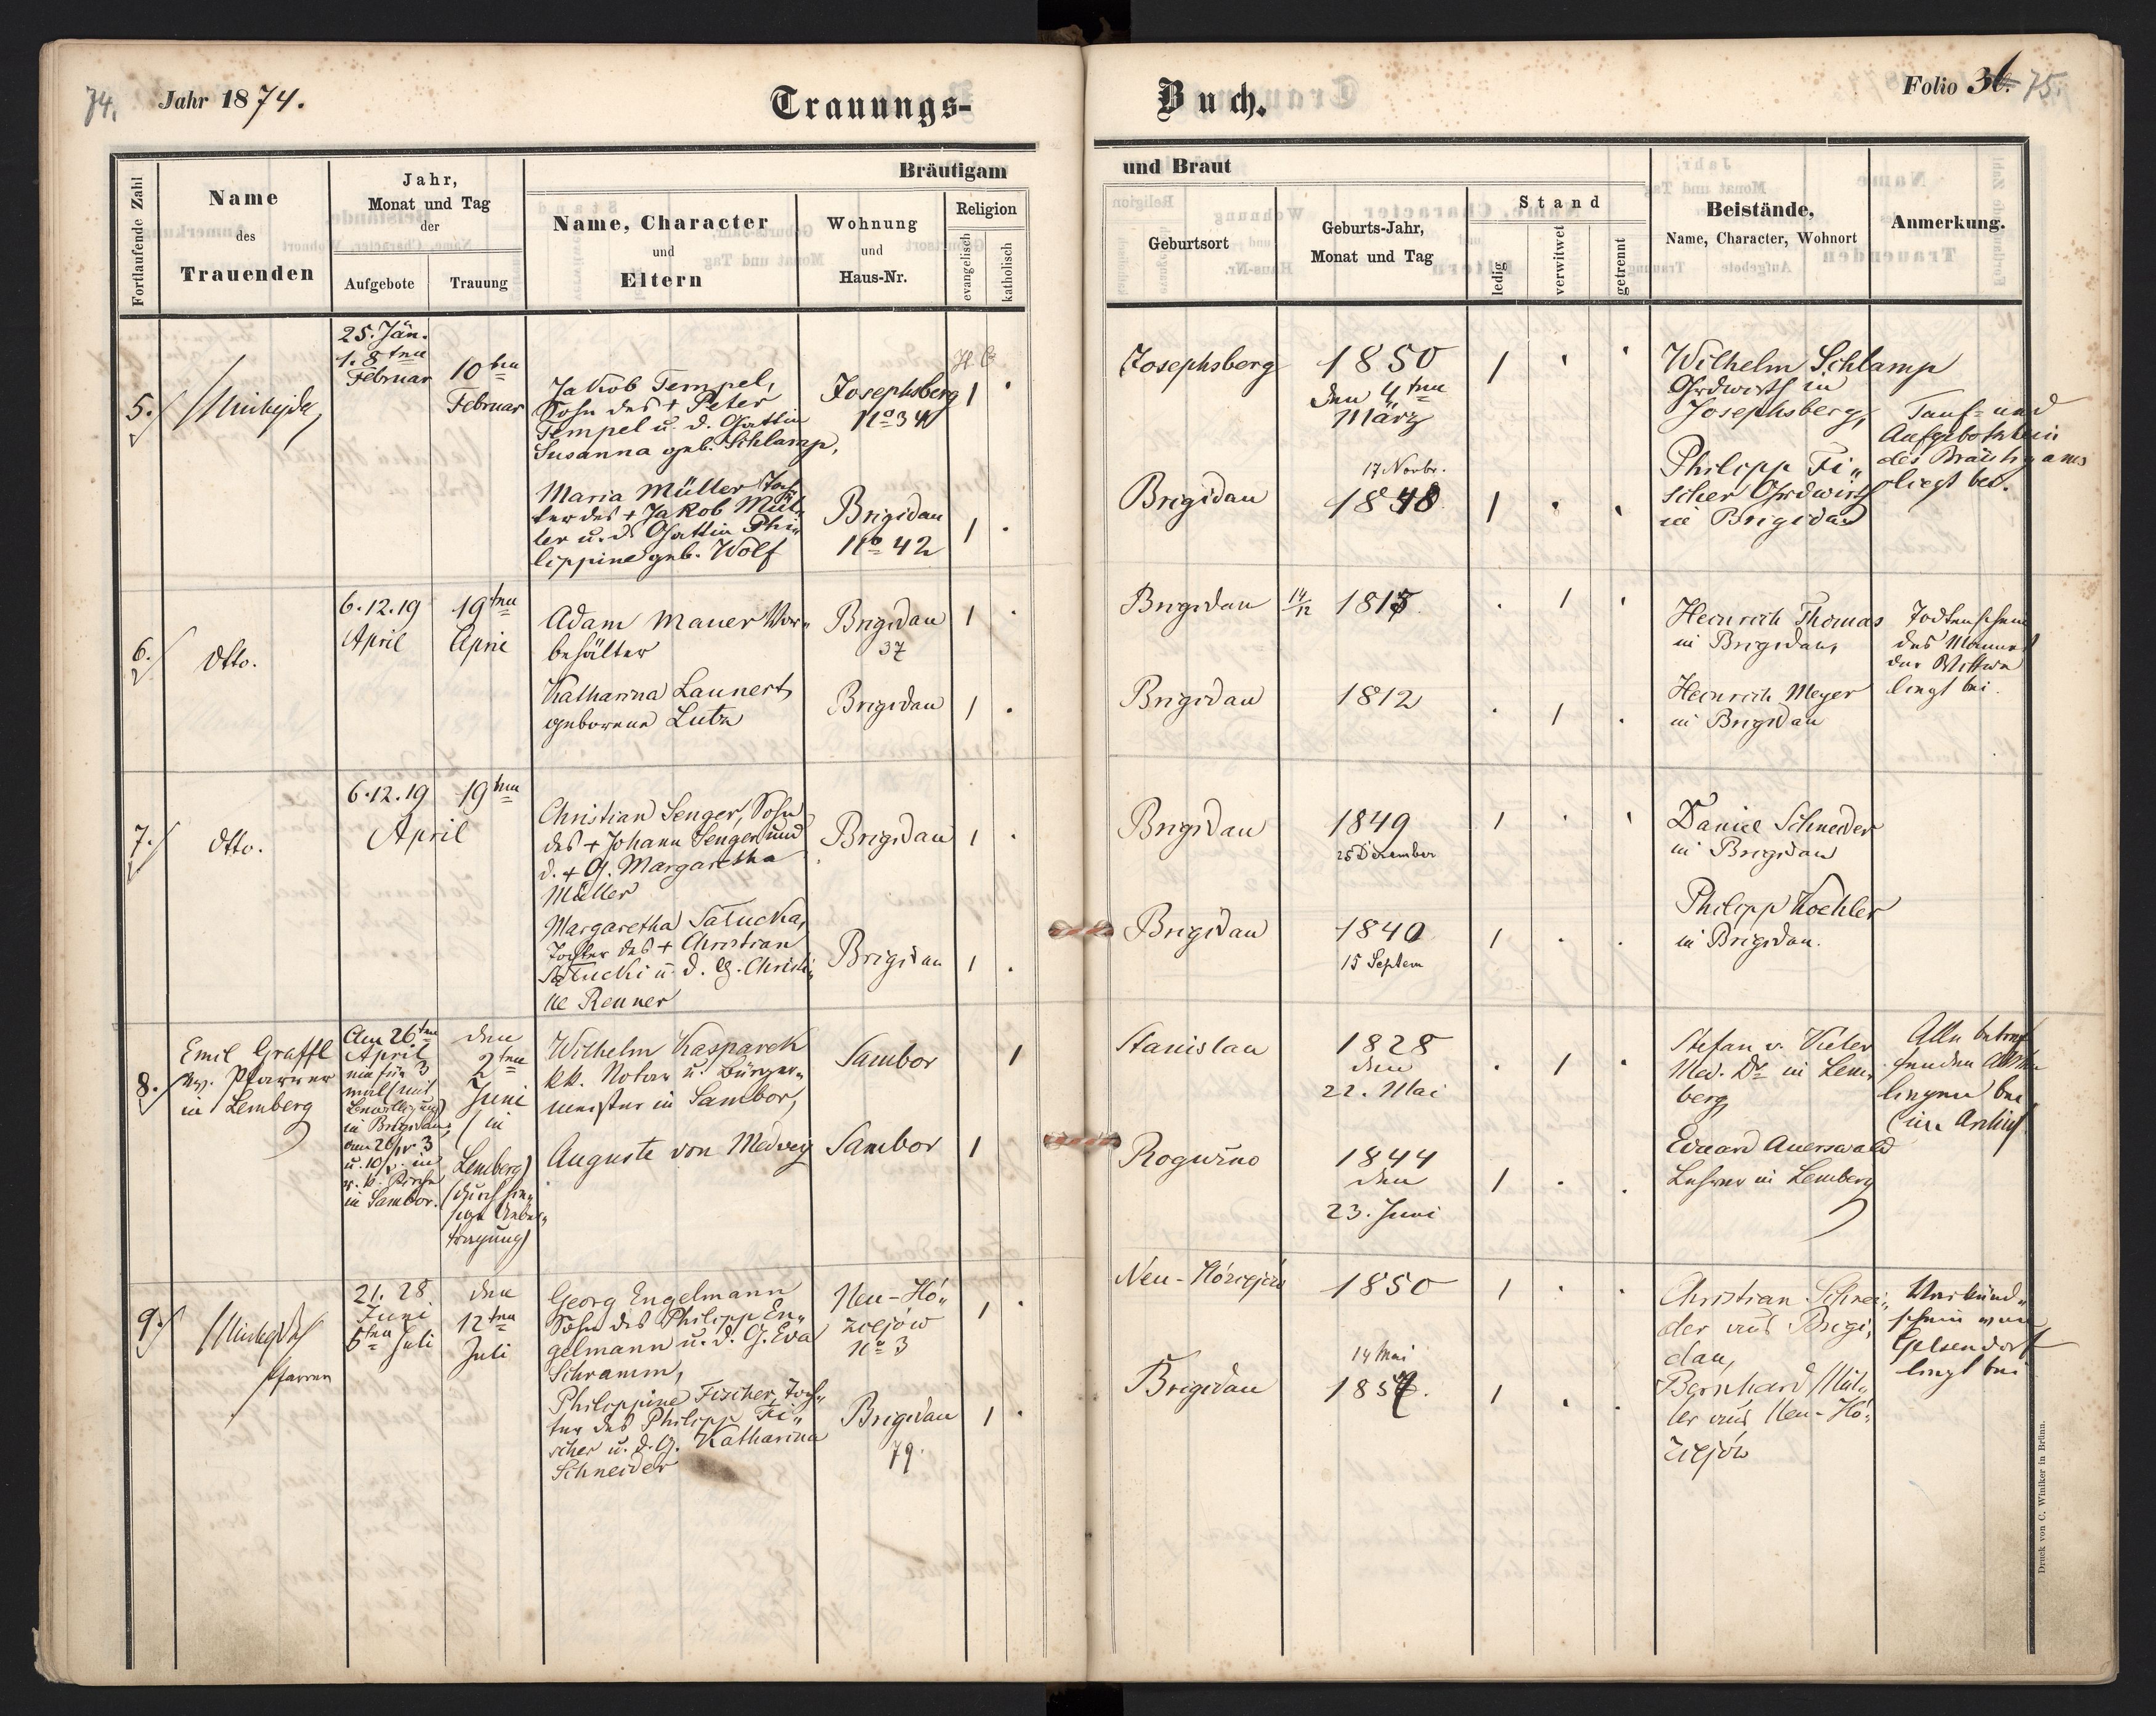 74.
Jahr 1874.
Trauungs-
Buch.
Folio 36. 75.
Fortlaufende Zahl
Name
des
Trauenden
Jahr,
Monat und Tag
der
Aufgebote
Trauung
Bräutigam
Name, Character
und
Eltern
Wohnung
und
Haus-Nr.
Religion
evangelisch
katholisch
und Braut
Geburtsort
Geburts-Jahr,
Monat und Tag
Stand
ledig
verwitwet
getrennt
Beistände,
Name, Character, Wohnort
Anmerkung.
5.
25. Jän.
1. 8ten
Februar
10ten
Februar
Jakob Tempel,
Sohn des + Peter
Tempel u. d. Gattin
Susanna geb. Schlamp,
Josephsberg
No 34
H. C.
1
Josephsberg
1850
den 4ten
März
1
Wilhelm Schlamp
Grdwirth in
Josephsberg,
Tauf- und
Aufgebotschein
des Bräutigams
liegt bei.
Maria Müller Toch
ter des + Jakob Mül
ler u. d. Gattin Phi
lippine geb. Wolf
Brigidau
No 42
1
Brigidau
17 Novbr.
1848
1
Philipp Fi
scher Grdwirth
in Brigidau
6.
Otto.
6. 12. 19
April
19ten
April
Adam Mauer Vor
behälter
Brigidau
37
1
Brigidau
14/12 1818.
1
Heinrich Thomas
in Brigidau,
Todtenschein
des Mannes
der Wittwe
liegt bei.
Katharina Launert,
geborene Lutz
Brigidau
1
Brigidau
1812
1
Heinrich Meyer
in Brigidau
7.
Otto.
6. 12. 19
19ten
April
Christian Senger, Sohn
des + Johann Senger und
d. + G. Margaretha
Müller
Brigidau
1
Brigidau
1849
25 Dezember
1
Daniel Schneider
in Brigidau
Margaretha Satucka,
Tochter des + Christian
Satucki u. d. G. Christi
ne Renner
Brigidau
1
Brigidau
1840
15 Septem
1
Philipp Koehler
in Brigidau.
8.
Emil Graffl
ev. Pfarrer
in Lemberg
Am 26ten
April
ein für 3
mal (mit
Bewilligung)
in Brigidau
am 26/IV 3
u. 10/V. in
r. k. Kirche
in Sambor.
den
2ten
Juni
(in
Lemberg)
(durch
tragung)
Wilhelm Kasparek
kk. Notar u. Bürger
meister in Sambor,
Sambor
1
Stanislau
1828
den
22. Mai
1
Stefan v.
Med. Dr in Lem
berg
Alle betref
fenden Akten
liegen bei
im Archiv
Auguste von Medvey
Sambor
1
Roguzno
1844
den
23. Juni
1
Eduard Auerswald
Lehrer in Lemberg
9.
Pfarrer
21. 28
Juni
5ten Juli
den
12ten
Juli
Georg Engelmann
Sohn des Philipp En
gelmann u. d. G. Eva
Schramm,
Neu-Hó
zcejów
No 3
1
1850
1
Christian Schnei
der aus Brigi
dau,
Verkünd
schein von
Gelsendorf
liegt bei
Philippine Fischer, Toch
ter des Philipp Fi
scher u. d. G. Katharina
Schneider
Brigidau
79.
1
Brigidau
14 Mai
1
Bernhard Mül
ler aus Neu-Hó
zcejów
Druck von C. Winiker in Brünn.